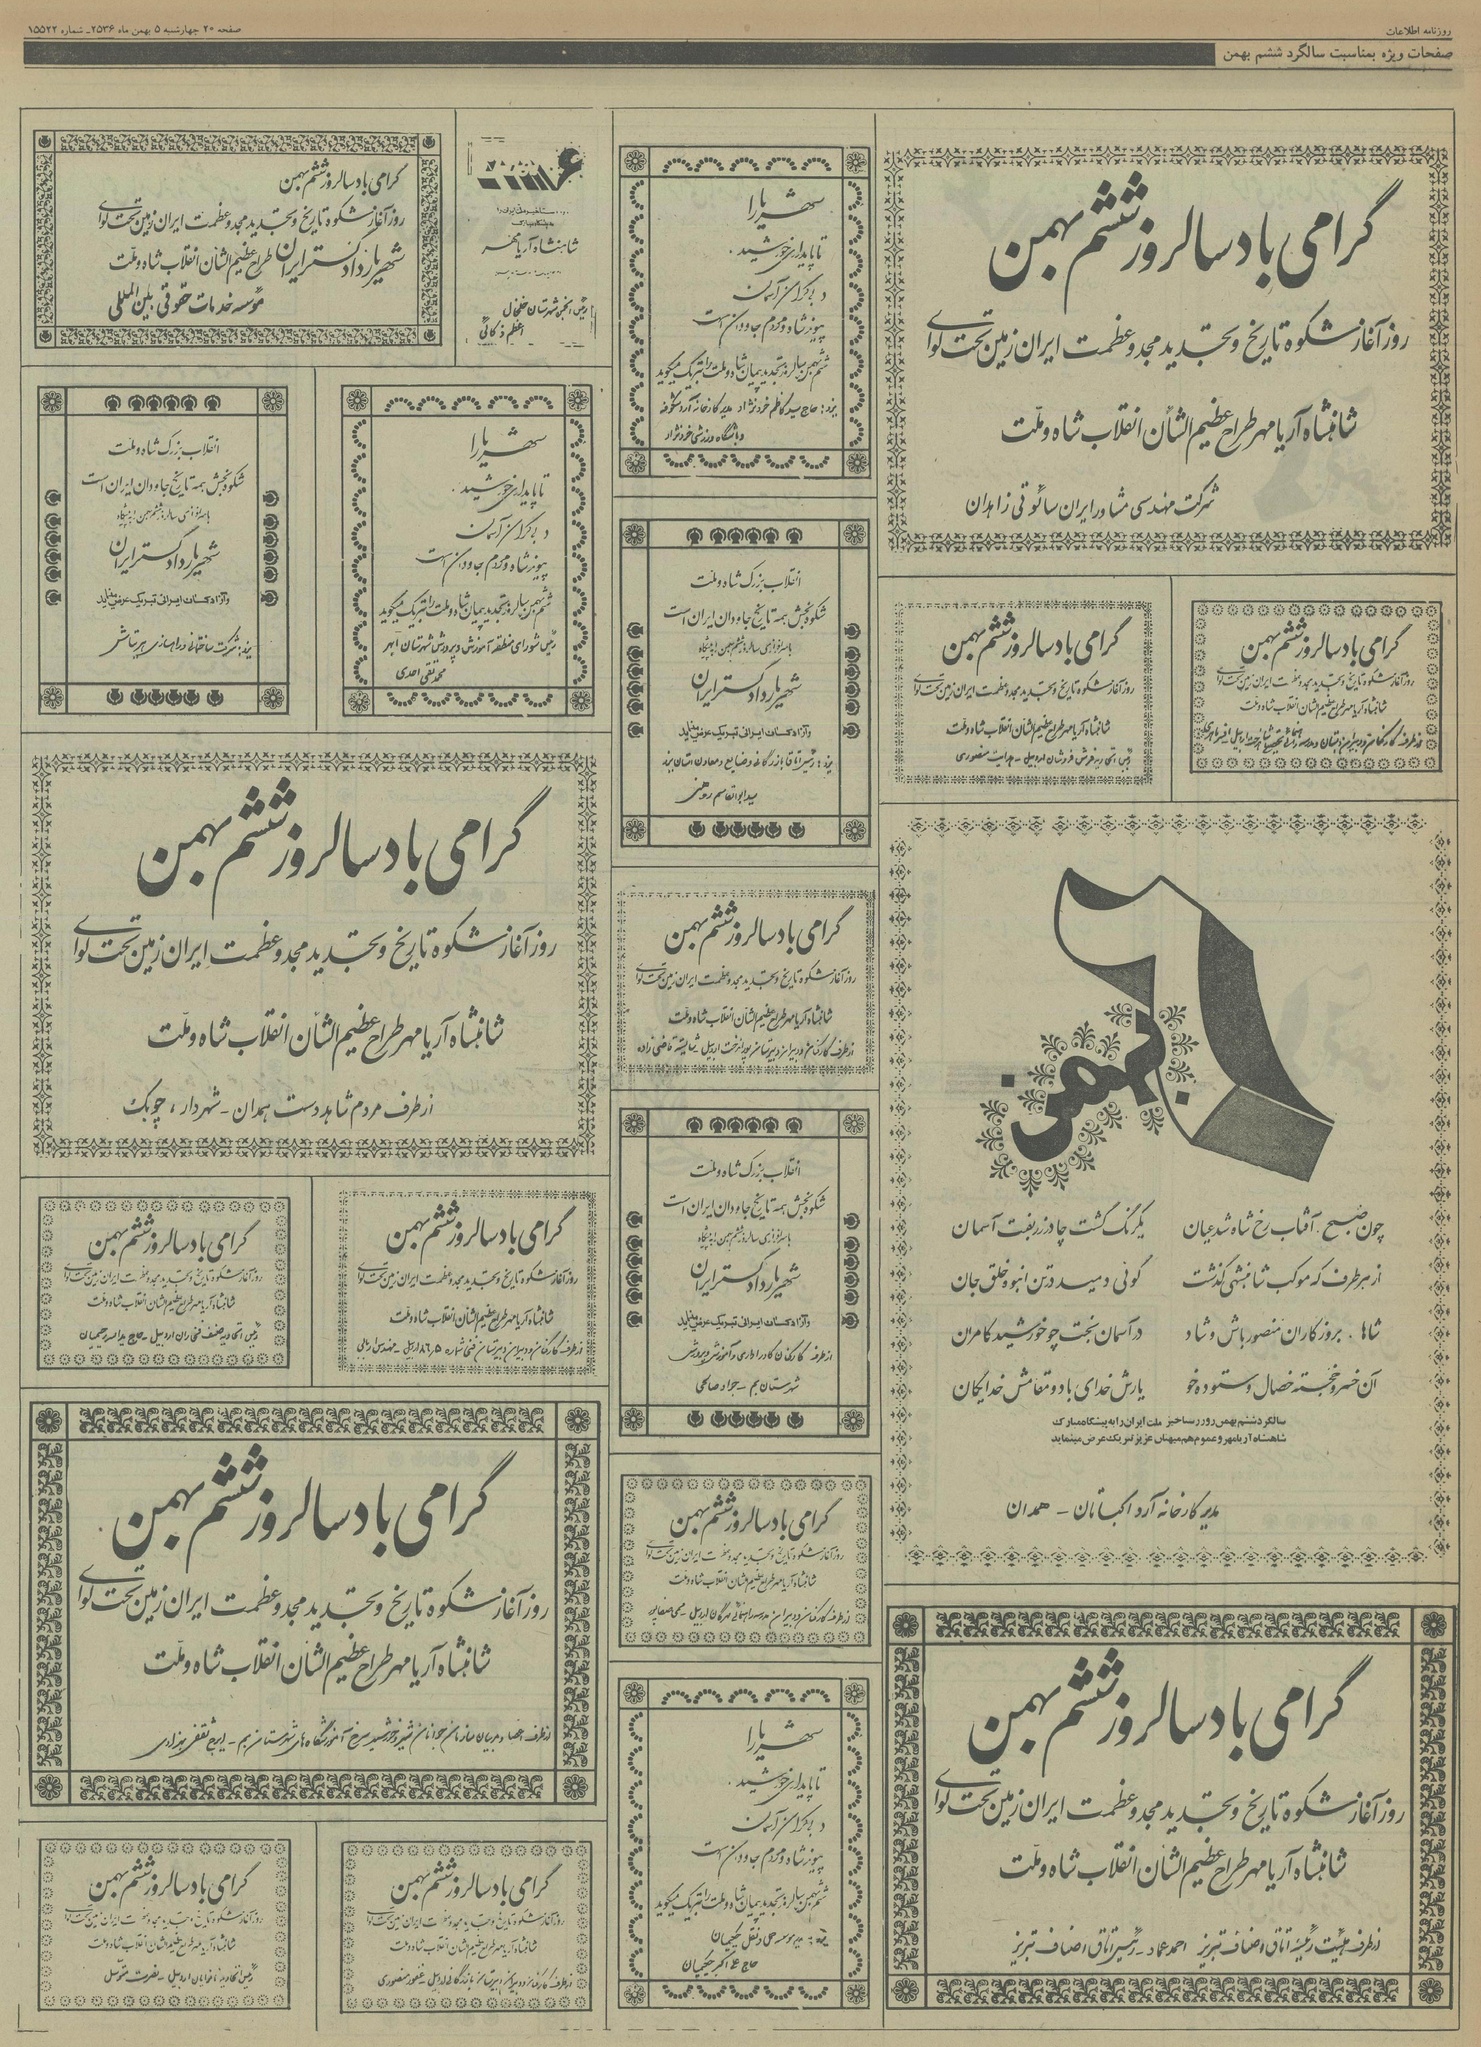 روزنامه اطلاعات
صفحه ۲۰ چهارشنبه ۵ بهمن ماه ۲۵۳۶ـ شماره ۱۵۵۲۲
صفحات ویژه بمناسبت سالگرد ششم بهمن
گرامی باد سالروز ششم بهمن
روز آغاز شکوه تاریخ و تجدید مجد و عظمت ایران زمین تحت لوای
شاهنشاه آریامهر طراح عظیم الشأن انقلاب شاه و ملّت
شرکت مهندسی مشاور ایران سائوتی زاهدان
گرامی باد سالروز ششم بهمن
روز آغاز شکوه تاریخ و تجدید مجد و عظمت ایران زمین تحت لوای
شاهنشاه آریامهر طراح عظیم الشأن انقلاب شاه و ملّت
گرامی باد سالروز ششم بهمن
روز آغاز شکوه تاریخ و تجدید مجد و عظمت ایران زمین تحت لوای
شاهنشاه آریامهر طراح عظیم الشأن انقلاب شاه و ملّت
رئیس اتحادیه فرش فروشان اردبیل ـ هدایت منصوری
۶ بهمن
چون صبح، آفتاب رخ شاه شد عیان
یکرنگ گشت چادر زربفت آسمان
از هر طرف که موکب شاهنشهی گذشت
گوئی دمید در تن انبوه خلق جان
شاها، بروزگاران منصور باش و شاد
در آسمان بخت چو خورشید کامران
آن خسرو خجسته خصال و ستوده خو
یارش خدای باد و مقامش خدایگان
سالگرد ششم بهمن روز رستاخیز ملت ایران را به پیشگاه مبارک
شاهنشاه آریامهر و عموم هم میهنان عزیز تبریک عرض مینماید
مدیر کارخانه آرد اکباتان ـ همدان
گرامی باد سالروز ششم بهمن
روز آغاز شکوه تاریخ و تجدید مجد و عظمت ایران زمین تحت لوای
شاهنشاه آریامهر طراح عظیم الشأن انقلاب شاه و ملّت
از طرف هیئت رئیسه اتاق اصناف تبریز احمد عماد ـ رئیس اتاق اصناف تبریز
شهریارا
تا پایداری خورشید،
در بیکران آسمان
پیوند شاه و مردم جاودان است
ششم بهمن سالروز تجدید پیمان شاه و ملت را تبریک میگوید
یزد: حاج سید کاظم خردنژاد مدیر کارخانه آرد شکوفه
و باشگاه ورزشی خردنژاد
انقلاب بزرگ شاه و ملت
شکوه بخش همه تاریخ جاودان ایران است
شهریار دادگستر ایران
و آزادگان ایرانی تبریک عرض مینماید
یزد: رئیس اتاق بازرگانی و صنایع و معادن استان یزد
سید ابوالقاسم روهنی
گرامی باد سالروز ششم بهمن
روز آغاز شکوه تاریخ و تجدید مجد و عظمت ایران زمین تحت لوای
شاهنشاه آریامهر طراح عظیم الشأن انقلاب شاه و ملّت
از طرف کارکنان و دبیران دبیرستان پوراندخت اردبیل شایسته قاضی زاده
انقلاب بزرگ شاه و ملت
شکوه بخش همه تاریخ جاودان ایران است
شهریار دادگستر ایران
و آزادگان ایرانی تبریک عرض مینماید
از طرف کارکنان کادر اداری و آموزشی و پرورش
شهرستان بم ـ جواد صالحی
گرامی باد سالروز ششم بهمن
روز آغاز شکوه تاریخ و تجدید مجد و عظمت ایران زمین تحت لوای
شاهنشاه آریامهر طراح عظیم الشأن انقلاب شاه و ملّت
از طرف کارکنان و دبیران مدرسه راهنمائی مهرگان اردبیل ـ
شهریارا
تا پایداری خورشید،
در بیکران آسمان
پیوند شاه و مردم جاودان است
ششم بهمن سالروز تجدید پیمان شاه و ملت را تبریک میگوید
حاج علی اکبر حکیمیان
شاهنشاه آریامهر
رئیس انجمن شهرستان خلخال
گرامی باد سالروز ششم بهمن
روز آغاز شکوه تاریخ و تجدید مجد و عظمت ایران زمین تحت لوای
شهریار دادگستر ایران طراح عظیم الشأن انقلاب شاه و ملت
مؤسسه خدمات حقوقی بین المللی
شهریارا
تا پایداری خورشید،
در بیکران آسمان
پیوند شاه و مردم جاودان است
ششم بهمن سالروز تجدید پیمان شاه و ملت را تبریک میگوید
رئیس شورای منطقه آموزش و پرورش شهرستان ابهر
محمد تقی احدی
انقلاب بزرگ شاه و ملت
شکوه بخش همه تاریخ جاودان ایران است
شهریار دادگستر ایران
و آزادگان ایرانی تبریک عرض مینماید
یزد: شرکت ساختمانی و راهسازی
گرامی باد سالروز ششم بهمن
روز آغاز شکوه تاریخ و تجدید مجد و عظمت ایران زمین تحت لوای
شاهنشاه آریامهر طراح عظیم الشأن انقلاب شاه و ملّت
از طرف مردم شاهددست همدان ـ شهردار، چوبک
گرامی باد سالروز ششم بهمن
روز آغاز شکوه تاریخ و تجدید مجد و عظمت ایران زمین تحت لوای
شاهنشاه آریامهر طراح عظیم الشأن انقلاب شاه و ملّت
گرامی باد سالروز ششم بهمن
روز آغاز شکوه تاریخ و تجدید مجد و عظمت ایران زمین تحت لوای
شاهنشاه آریامهر طراح عظیم الشأن انقلاب شاه و ملّت
گرامی باد سالروز ششم بهمن
روز آغاز شکوه تاریخ و تجدید مجد و عظمت ایران زمین تحت لوای
شاهنشاه آریامهر طراح عظیم الشأن انقلاب شاه و ملّت
گرامی باد سالروز ششم بهمن
روز آغاز شکوه تاریخ و تجدید مجد و عظمت ایران زمین تحت لوای
شاهنشاه آریامهر طراح عظیم الشأن انقلاب شاه و ملّت
گرامی باد سالروز ششم بهمن
روز آغاز شکوه تاریخ و تجدید مجد و عظمت ایران زمین تحت لوای
شاهنشاه آریامهر طراح عظیم الشأن انقلاب شاه و ملّت